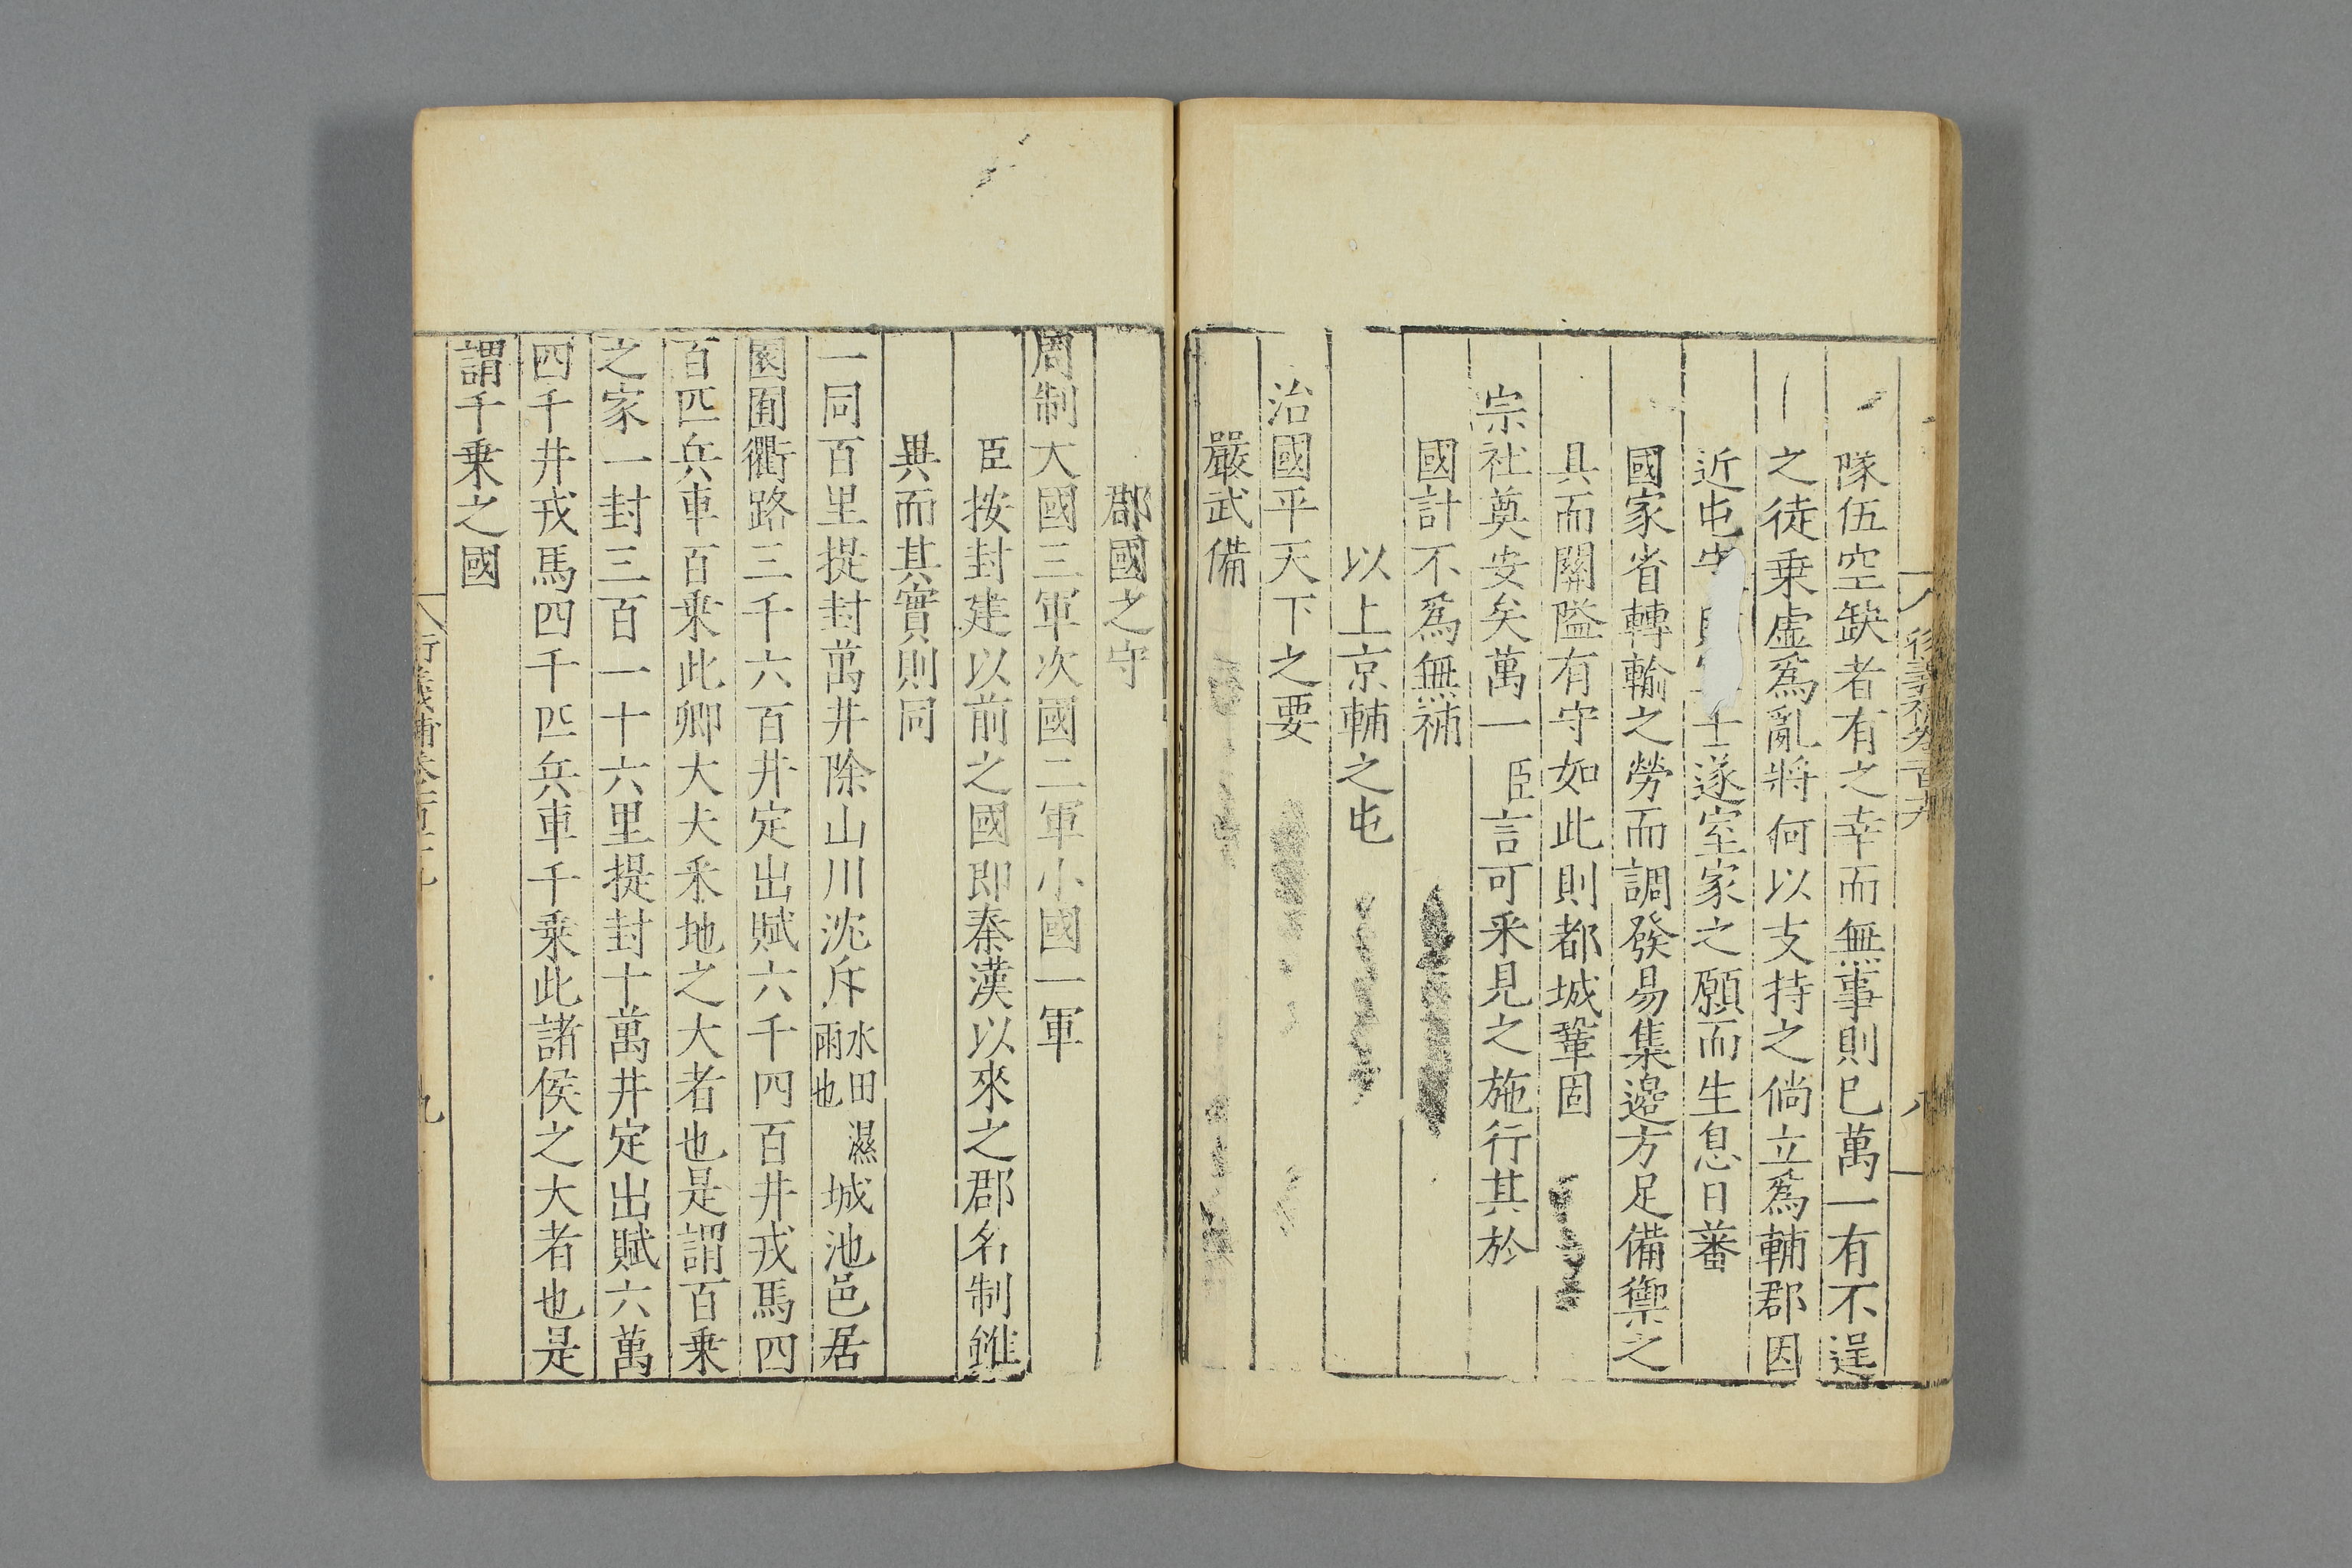 隊伍空缺者有之幸而無事則已萬一有不逞
之徒乗虛爲亂將何以支持之倘立爲輔郡因
近屯 士遂室家之願而生息日蕃
國家省轉輸之勞而調發易集邉方足備禦之
具而關隘有守如此則都城鞏固
宗社奠安矣萬一臣言可采見之施行其於
國計不爲無補
以上京輔之屯
治國平天下之要
嚴武備
郡國之守
周制大國三軍次國二軍小國一軍
臣按封建以前之國即秦漢以來之郡名制雖
異而其實則同
一同百里提封萬井除山川沈斥水田瀉鹵也城池邑居
園囿衢路三千六百井定出賦六千四百井戎馬四
百匹兵車百乗此卿大夫采地之大者也是謂百乗
之家一封三百一十六里提封十萬井定出賦六萬
四千井戎馬四千匹兵車千乗此諸侯之大者也是
謂千乗之國
九